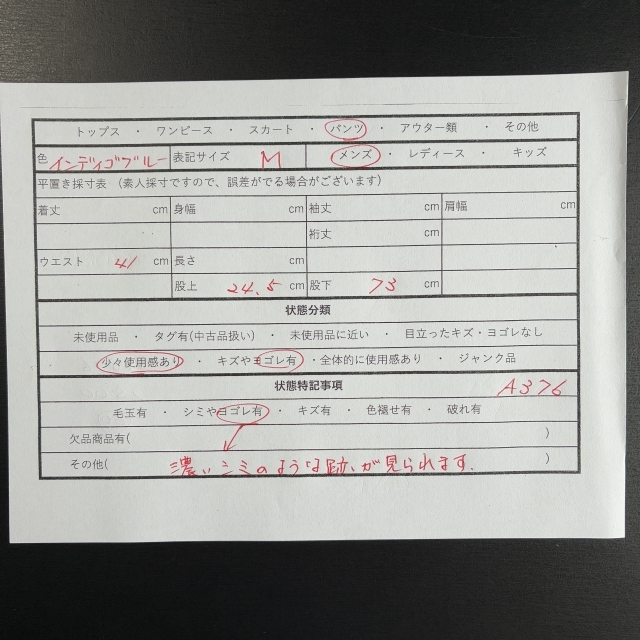 トップス ・ ワンピース ・ スカート ・ パンツ ・ アウター類 ・ その他
色 インディゴブルー 表記サイズ M メンズ ・ レディース ・ キッズ
平置き採寸表 (素人採寸ですので、誤差がでる場合がございます)
着丈 cm 身幅 cm 袖丈 cm 肩幅 cm
裄丈 cm
ウエスト 41 cm 長さ cm
股上 24.5 cm 股下 73 cm
状態分類
未使用品 ・ タグ有(中古品扱い) ・ 未使用品に近い ・ 目立ったキズ・ヨゴレなし
少々使用感あり ・ キズやヨゴレ有 ・全体的に使用感あり ・ ジャンク品
状態特記事項 A376
毛玉有 ・ シミやヨゴレ有 ・ キズ有 ・ 色褪せ有 ・ 破れ有
欠品商品有( )
その他( 濃いシミのような跡が見られます. )